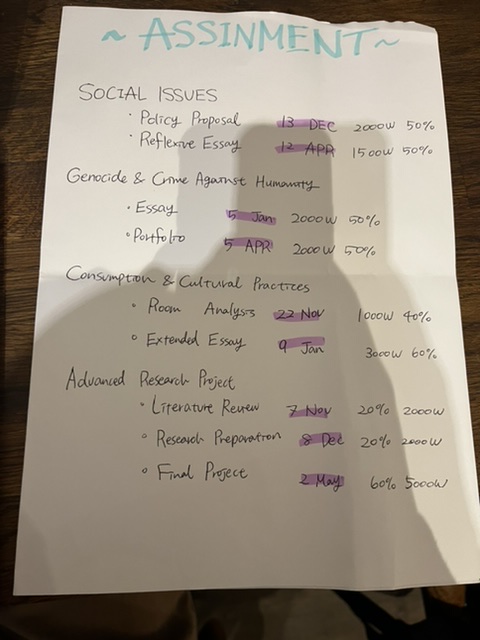 ~ ASSINMENT ~
SOCIAL ISSUES
· Policy Proposal 13 DEC 2000W 50%
· Reflexive Essay 12 APR 1500W 50%
Genocide & Crime Against Humanity
· Essay 5 Jan 2000W 50%
· Portfolio 5 APR 2000W 50%
Consumption & Cultural Practices
· Room Analysis 22 Nov 1000W 40%
· Extended Essay 9 Jan 3000W 60%
Advanced Research Project
· Literature Review 7 Nov 20% 2000W
· Research Preparation 8 Dec 20% 2000W
· Final Project 2 May 60% 5000W